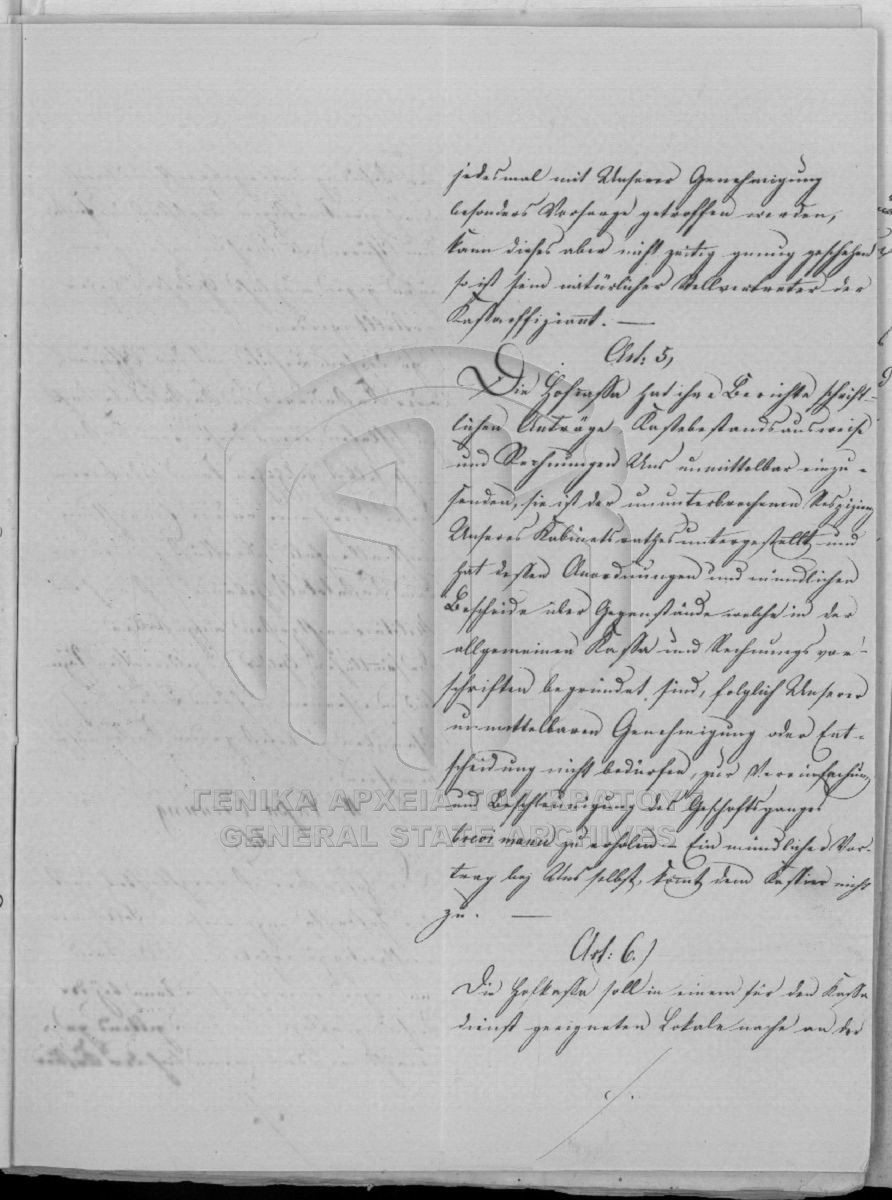 jedesmal mit Unserer Genehmigung
besonders Vorsorge getroffen werden,
kann dieses aber nicht zeitig genug geschehen
so ist sein natürlicher Stellvertreter der
Kassaoffiziant. —
Art: 5,
Die Hofcassa hat ihre Berichte schrift-
lichen Anträge Kassebestandsausweise
und Rechnungen Uns unmittelbar einzu-
senden, sie ist der ununterbrochenen Respizienz
Unseres Kabinetsrathes untergestellt und
hat dessen Anordnungen und mündlichen
Bescheide über Gegenstände welche in der
allgemeinen Kassa und Rechnungs vor-
schriften begründet sind, folglich Unserer
unmittelbaren Genehmigung oder Ent-
scheidung nicht bedürfen, zur Vereinfachung
und Beschleunigung des Geschäftsganges
brevi manu zu erholen. – Ein mündlicher Vor-
trag bey Uns selbst, kömmt dem Kassier nicht
zu. —
Art: 6.)
Die Hofkassa soll in einem für den Kassa
dienst geeigneten Lokale nahe an der
ΓΕΝΙΚΑ ΑΡΧΕΙΑ ΤΟΥ ΚΡΑΤΟΥΣ
GENERAL STATE ARCHIVES